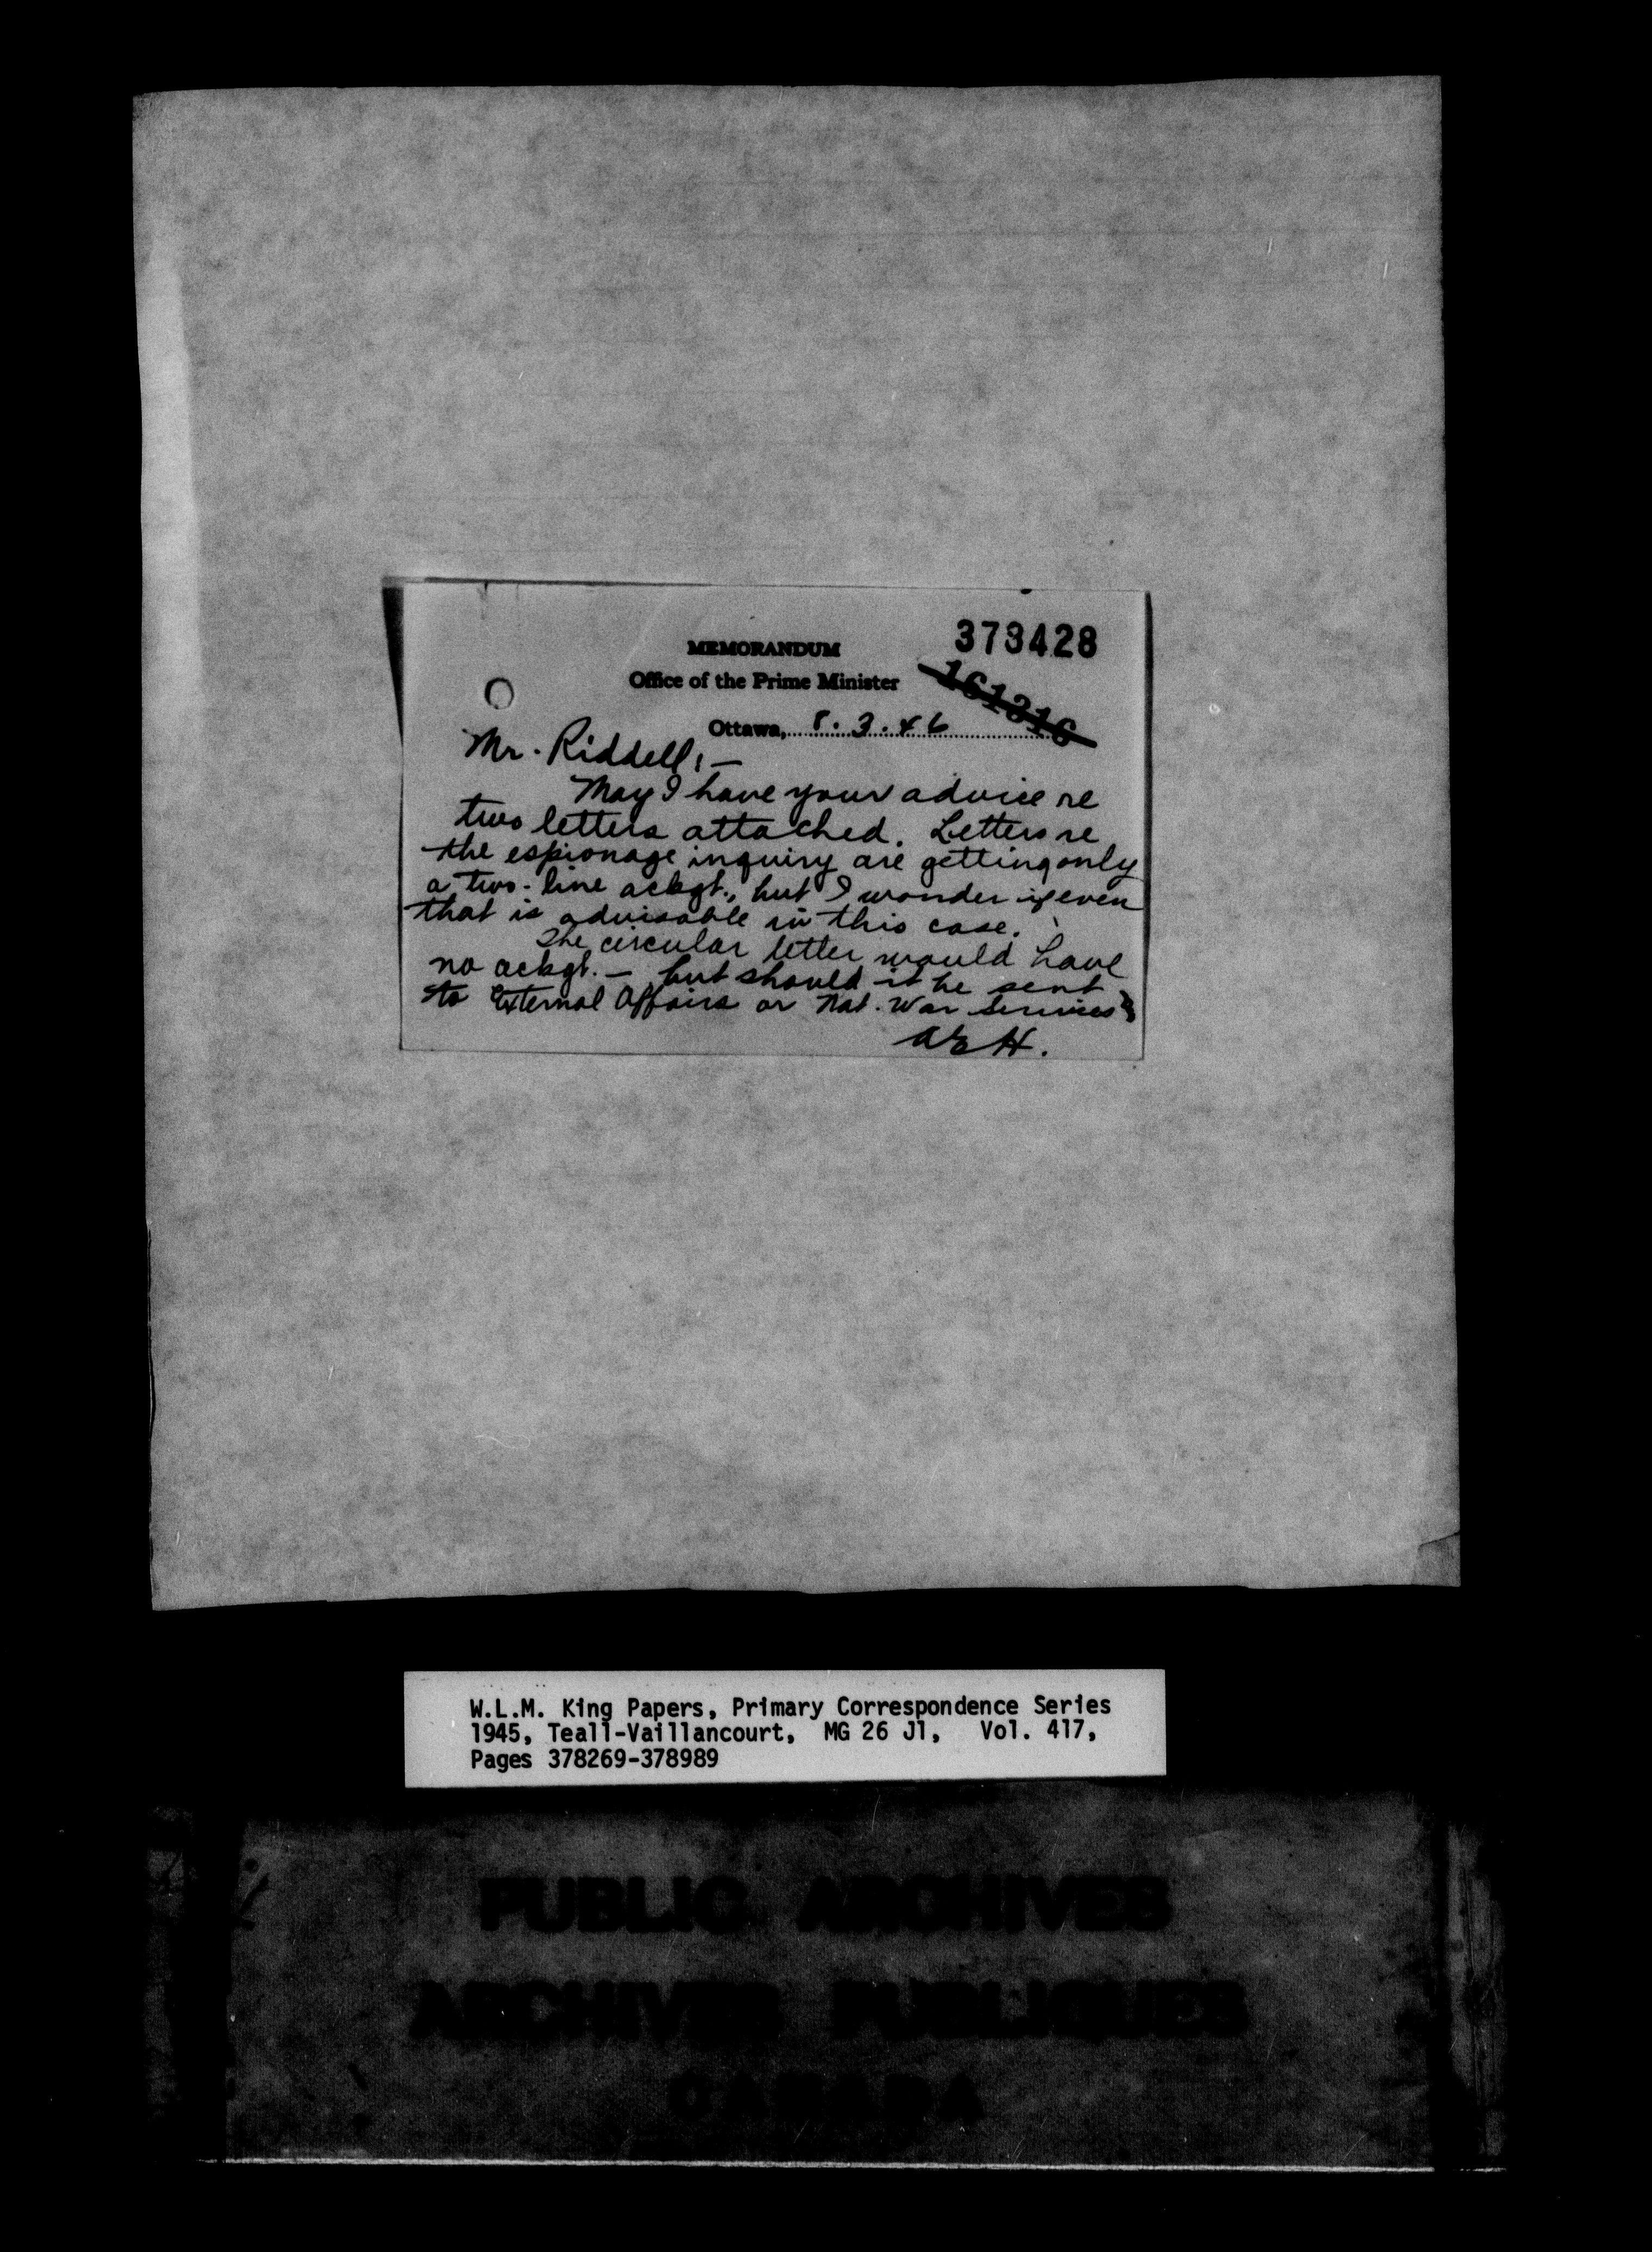 373428
MEMORANDUM
Office of the Prime Minister
161316
Ottawa, 8.3.46
Mr. Riddell, —
May I have your advice re
two letters attached. Letters re
the espionage inquiry are getting only
a two-line ackgt., but I wonder if even
that is advisable in this case.
The circular letter would have
no ackgt. — but should it be sent
to External Affairs or Nat. War Services?
AEH.
W.L.M. King Papers, Primary Correspondence Series
1945, Teall-Vaillancourt, MG 26 J1, Vol. 417,
Pages 378269-378989
PUBLIC ARCHIVES
ARCHIVES PUBLIQUES
CANADA